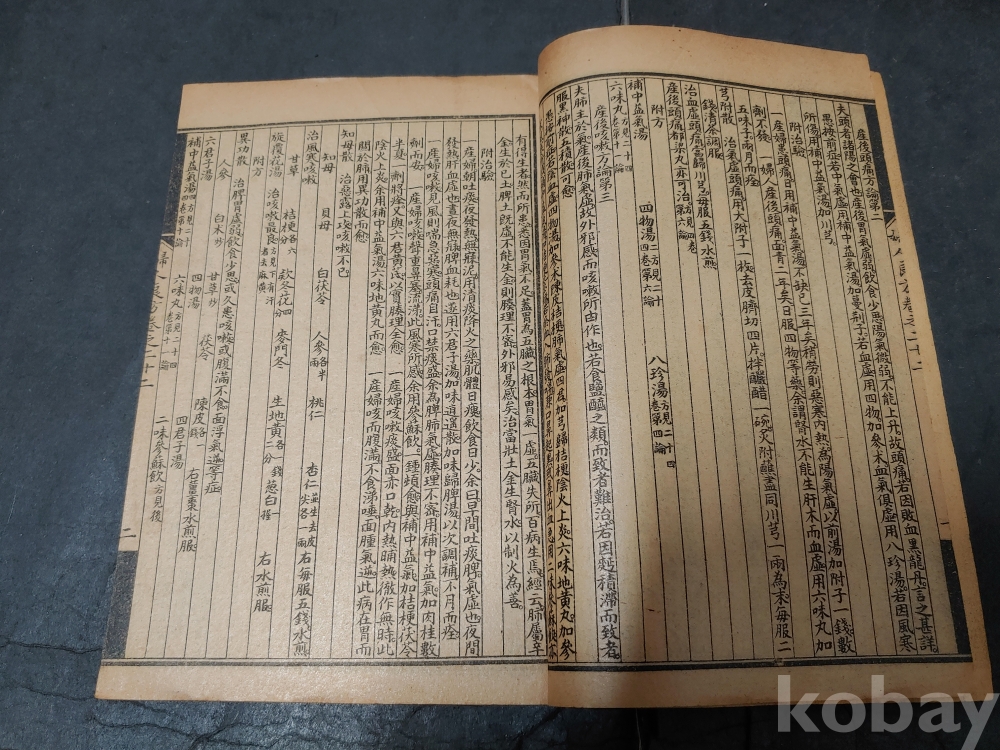 產後頭痛方論第二
夫頭者諸陽之會也產後胃氣虛弱飲食少思陽氣微弱不能上升故頭痛若因敗血黑龍丹言之甚詳
愚按前症若中氣虛用補中益氣湯加蔓荊子若血虛用四物加參朮血氣俱虛用八珍湯若因風寒
所傷用補中益氣湯加川芎
附治驗
一產婦患頭痛日用補中益氣湯不缺已三年矣稍勞則惡寒內熱為陽氣虛以前湯加附子一錢數
劑不發 一婦人產後頭痛面青二年矣日服四物等藥余謂腎水不能生肝木而血虛用六味丸加
五味子兩月而痊
芎附散 治氣虛頭痛用大附子一枚去皮臍切四片拌釅醋一碗灸附蘸盡同川芎一兩為末每服二
錢清茶調服
治血虛頭痛當歸川芎每服五錢水煎
產後頭痛都梁丸亦可治方見四卷第六論
附方
補中益氣湯 四物湯方見二十四卷第六論 八珍湯方見二十四卷第四論
六味丸方見二十四卷第十一論
產後咳嗽方論第三
夫肺主於氣產後肺氣虛故外邪感而咳嗽所由作也若食鹽醯之類而致者難治若因瘀積滯而致者
服黑神散五積散可愈
有得生者然而所患悉因胃氣不足蓋胃為五臟之根本胃氣一虛五臟失所百病生焉經云肺屬辛
金生於己土脾土既虛不能生金則腠理不密外邪易感矣治當壯土金生腎水以制火為善
附治驗
一產婦朝吐痰夜發熱無寐泥用清痰降火之藥肌體日瘦飲食日少余曰早間吐痰脾氣虛也夜間
發熱肝血虛也晝夜無寐脾血耗也遂用六君子湯加味逍遙散加味歸脾湯以次調補不月而痊
一產婦咳嗽見風則喘急惡寒頭痛自汗口禁痰盛余為脾肺氣虛腠理不密用補中益氣加肉桂數
劑而安 一產婦咳嗽聲重鼻塞流涕此風寒所感余用參蘇飲一鍾頓愈與補中益氣加桔梗茯苓
半夏一劑將痊又與六君黃芪以實腠理全愈 一產婦咳嗽痰盛面赤口乾內熱晡熱微作無時此
陰火上炎余用補中益氣湯六味地黃丸而愈 一產婦咳而腹滿不食涕唾面腫氣逆此病在胃而
關於肺用異功散而愈
知母散 治惡露上攻咳嗽不已
知母 貝母 白茯苓 人參各半兩 桃仁 杏仁並生去皮尖各一兩 右每服五錢水煎
治風寒咳嗽
甘草 桔梗各六分 款冬花四分 麥門冬 生地黃各二分一錢 蔥白一握 右水煎服
旋覆花湯 治咳嗽最良方見下有汗者去麻黃
附方
異功散 治脾胃虛弱飲食少思或久患咳嗽或腹滿不食面浮氣逆等症
人參 白朮炒 甘草炒 茯苓 陳皮各一錢 右薑棗水煎服
六君子湯 四物湯 四君子湯
補中益氣湯四方見二十四卷第十論 六味丸方見二十四卷第十一論 二味參蘇飲方見後
婦人良方卷之二十二
二